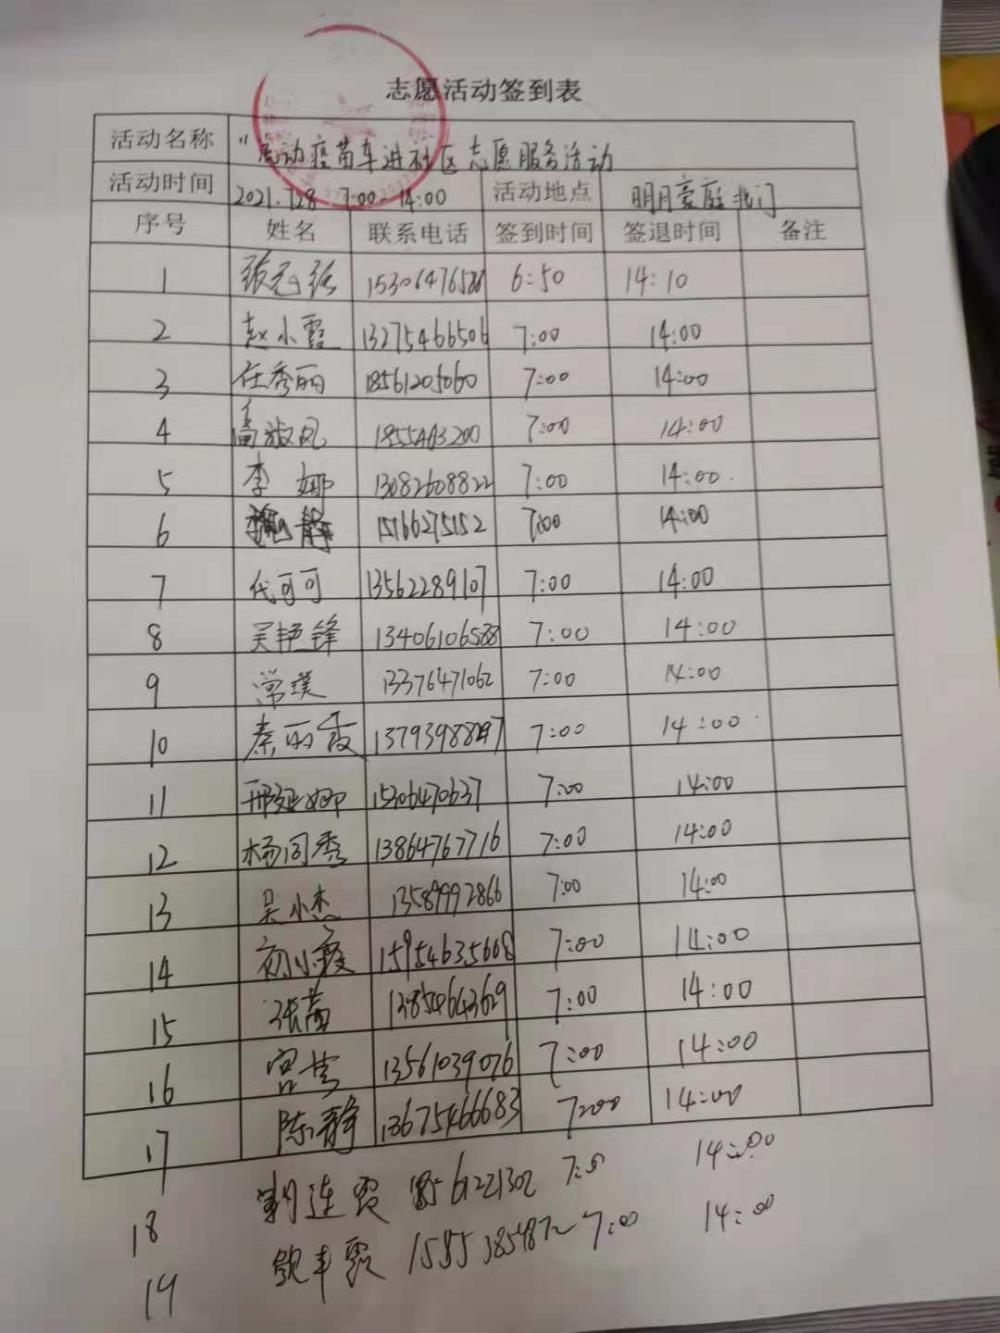 志愿活动签到表
活动名称 "流动疫苗车进社区志愿服务活动
活动时间 2021.7.28 7:00-14:00 活动地点 明月豪庭北门
序号 姓名 联系电话 签到时间 签退时间 备注
1 6:50 14:10
2 赵小霞 13275466506 7:00 14:00
3 任秀丽 18561205060 7:00 14:00
4 7:00 14:00
5 李娜 13082608822 7:00 14:00
6 15166275152 7:00 14:00
7 代可可 13562289107 7:00 14:00
8 吴艳锋 13406106588 7:00 14:00
9 常璞 13376471062 7:00 14:00
10 秦丽霞 7:00 14:00
11 15306470637 7:00 14:00
12 杨同秀 13864767716 7:00 14:00
13 吴小杰 13589992866 7:00 14:00
14 初小霞 15954635668 7:00 14:00
15 张茜 13854643629 7:00 14:00
16 宫芳 13561039076 7:00 14:00
17 陈静 13675466683 7:00 14:00
18 18561221302 14:00
19 7:00 14:00